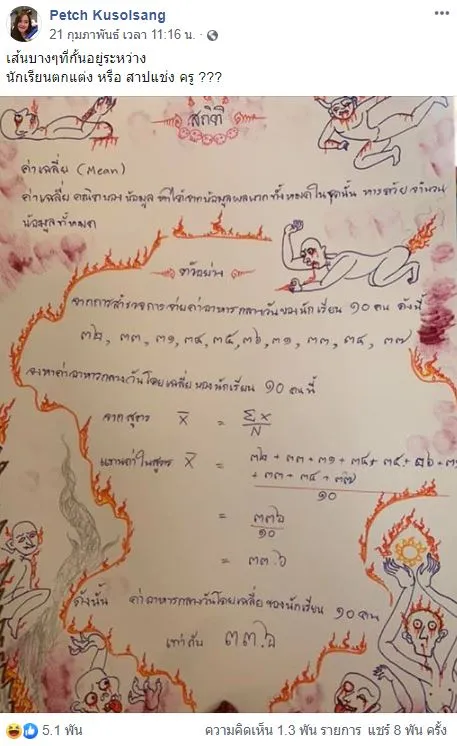 Petch Kusolsang
21 กุมภาพันธ์ เวลา 11:16 น.
เส้นบางๆที่กั้นอยู่ระหว่าง
นักเรียนตกแต่ง หรือ สาปแช่ง ครู ???
สถิติ
ค่าเฉลี่ย (Mean)
ค่าเฉลี่ย คณิตของข้อมูล ที่ได้จากข้อมูลผลบวกทั้งหมดในชุดนั้น หารด้วย จำนวน
ข้อมูลทั้งหมด
ตัวอย่าง
จากการสำรวจการจ่ายค่าอาหารกลางวันของนักเรียน ๑๐ คน ดังนี้
๓๒, ๓๓, ๓๑, ๓๔, ๓๕, ๓๖, ๓๑, ๓๓, ๓๔, ๓๗
จงหาค่าอาหารกลางวันโดยเฉลี่ยของนักเรียน ๑๐ คนนี้
จากสูตร X̄ = ΣX
N
แทนค่าในสูตร X̄ = ๓๒ + ๓๓ + ๓๑ + ๓๔ + ๓๕ + ๓๖ + ๓
+ ๓๓ + ๓๔ + ๓๗
๑๐
= ๓๓๖
๑๐
= ๓๓.๖
ดังนั้น ค่าอาหารกลางวันโดยเฉลี่ยของนักเรียน ๑๐ คน
เท่ากับ ๓๓.๖
5.1 พัน ความคิดเห็น 1.3 พัน รายการ แชร์ 8 พัน ครั้ง